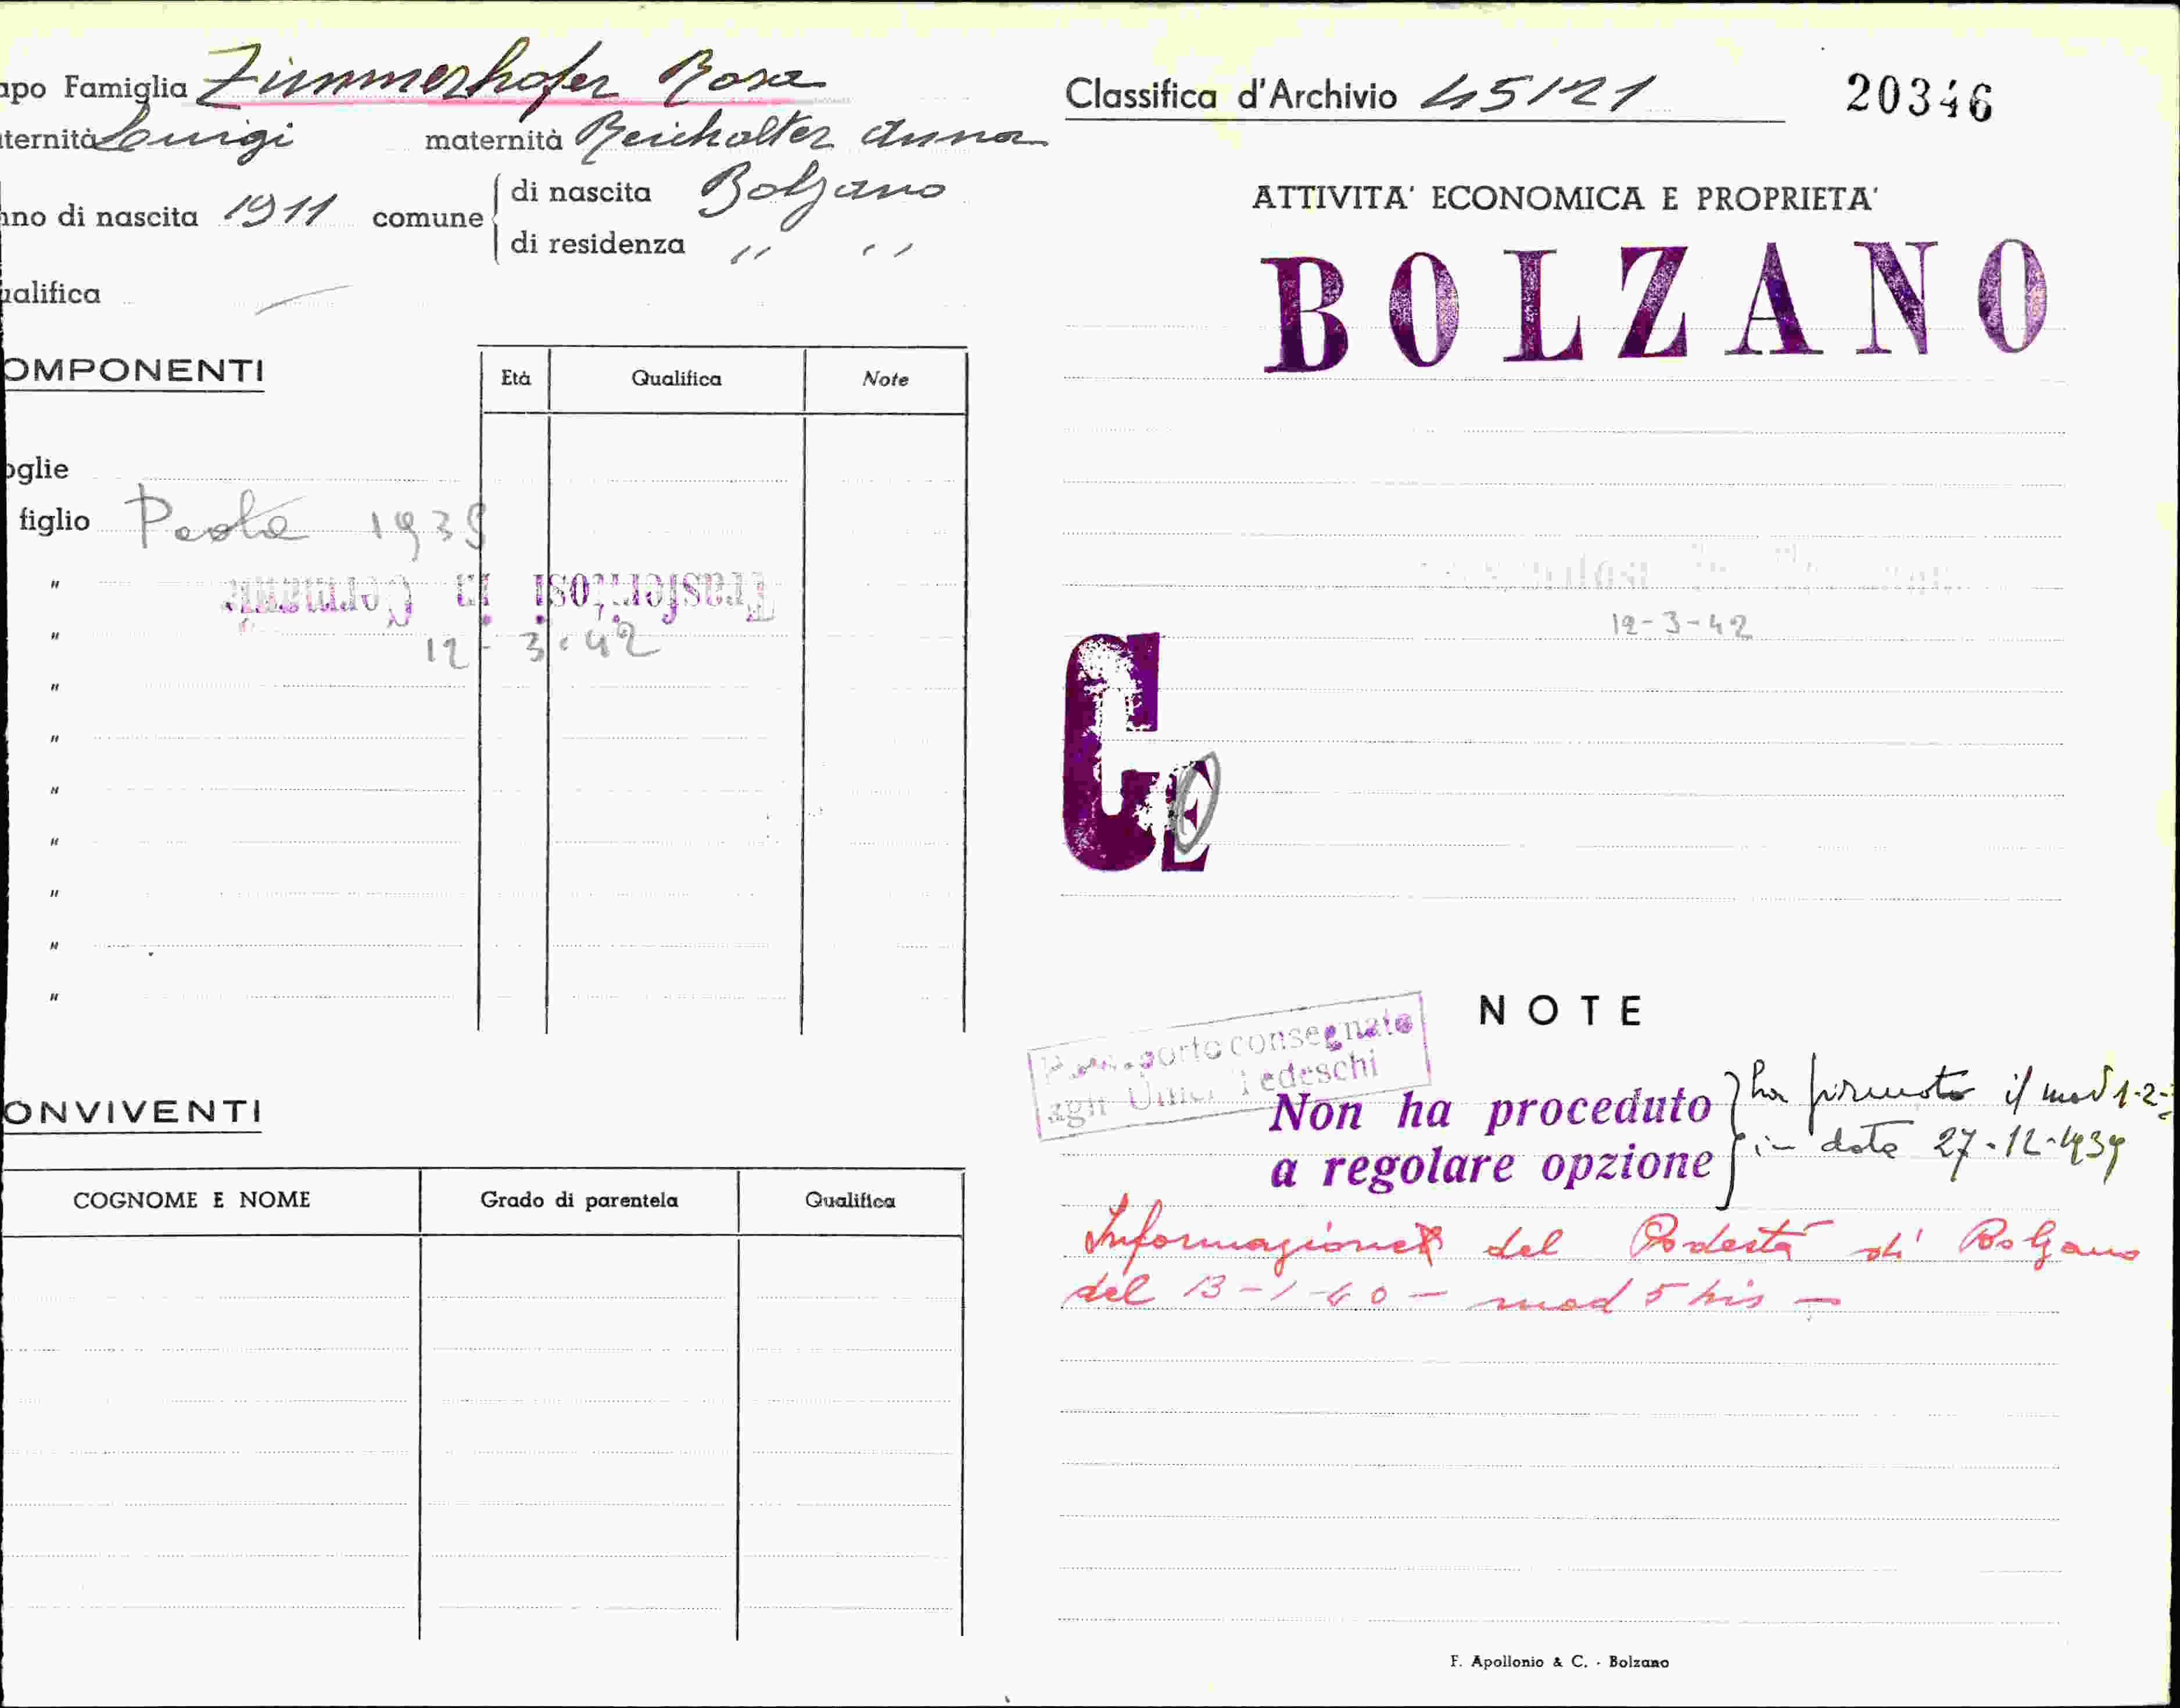 apo Famiglia Zimmerhofer Rosa
ternità Luigi maternità Reichalter Anna
nno di nascita 1911 comune di nascita Bolzano
di residenza " "
ualifica
OMPONENTI
Età Qualifica Note
oglie
figlio Paola 1939
" Trasferitosi in Germania
" 12-3-42
"
"
"
"
"
"
"
ONVIVENTI
COGNOME E NOME Grado di parentela Qualifica
Classifica d'Archivio 45/21 20346
ATTIVITA' ECONOMICA E PROPRIETA'
BOLZANO
12-3-42
C
E
NOTE
Passaporto consegnato
agli Uffici Tedeschi
Non ha proceduto ha firmato il mod 1-2-
a regolare opzione in data 27-12-1939
Informazione del Podestà di Bolzano
del 13-1-40 - mod 5 bis -
F. Apollonio & C. - Bolzano